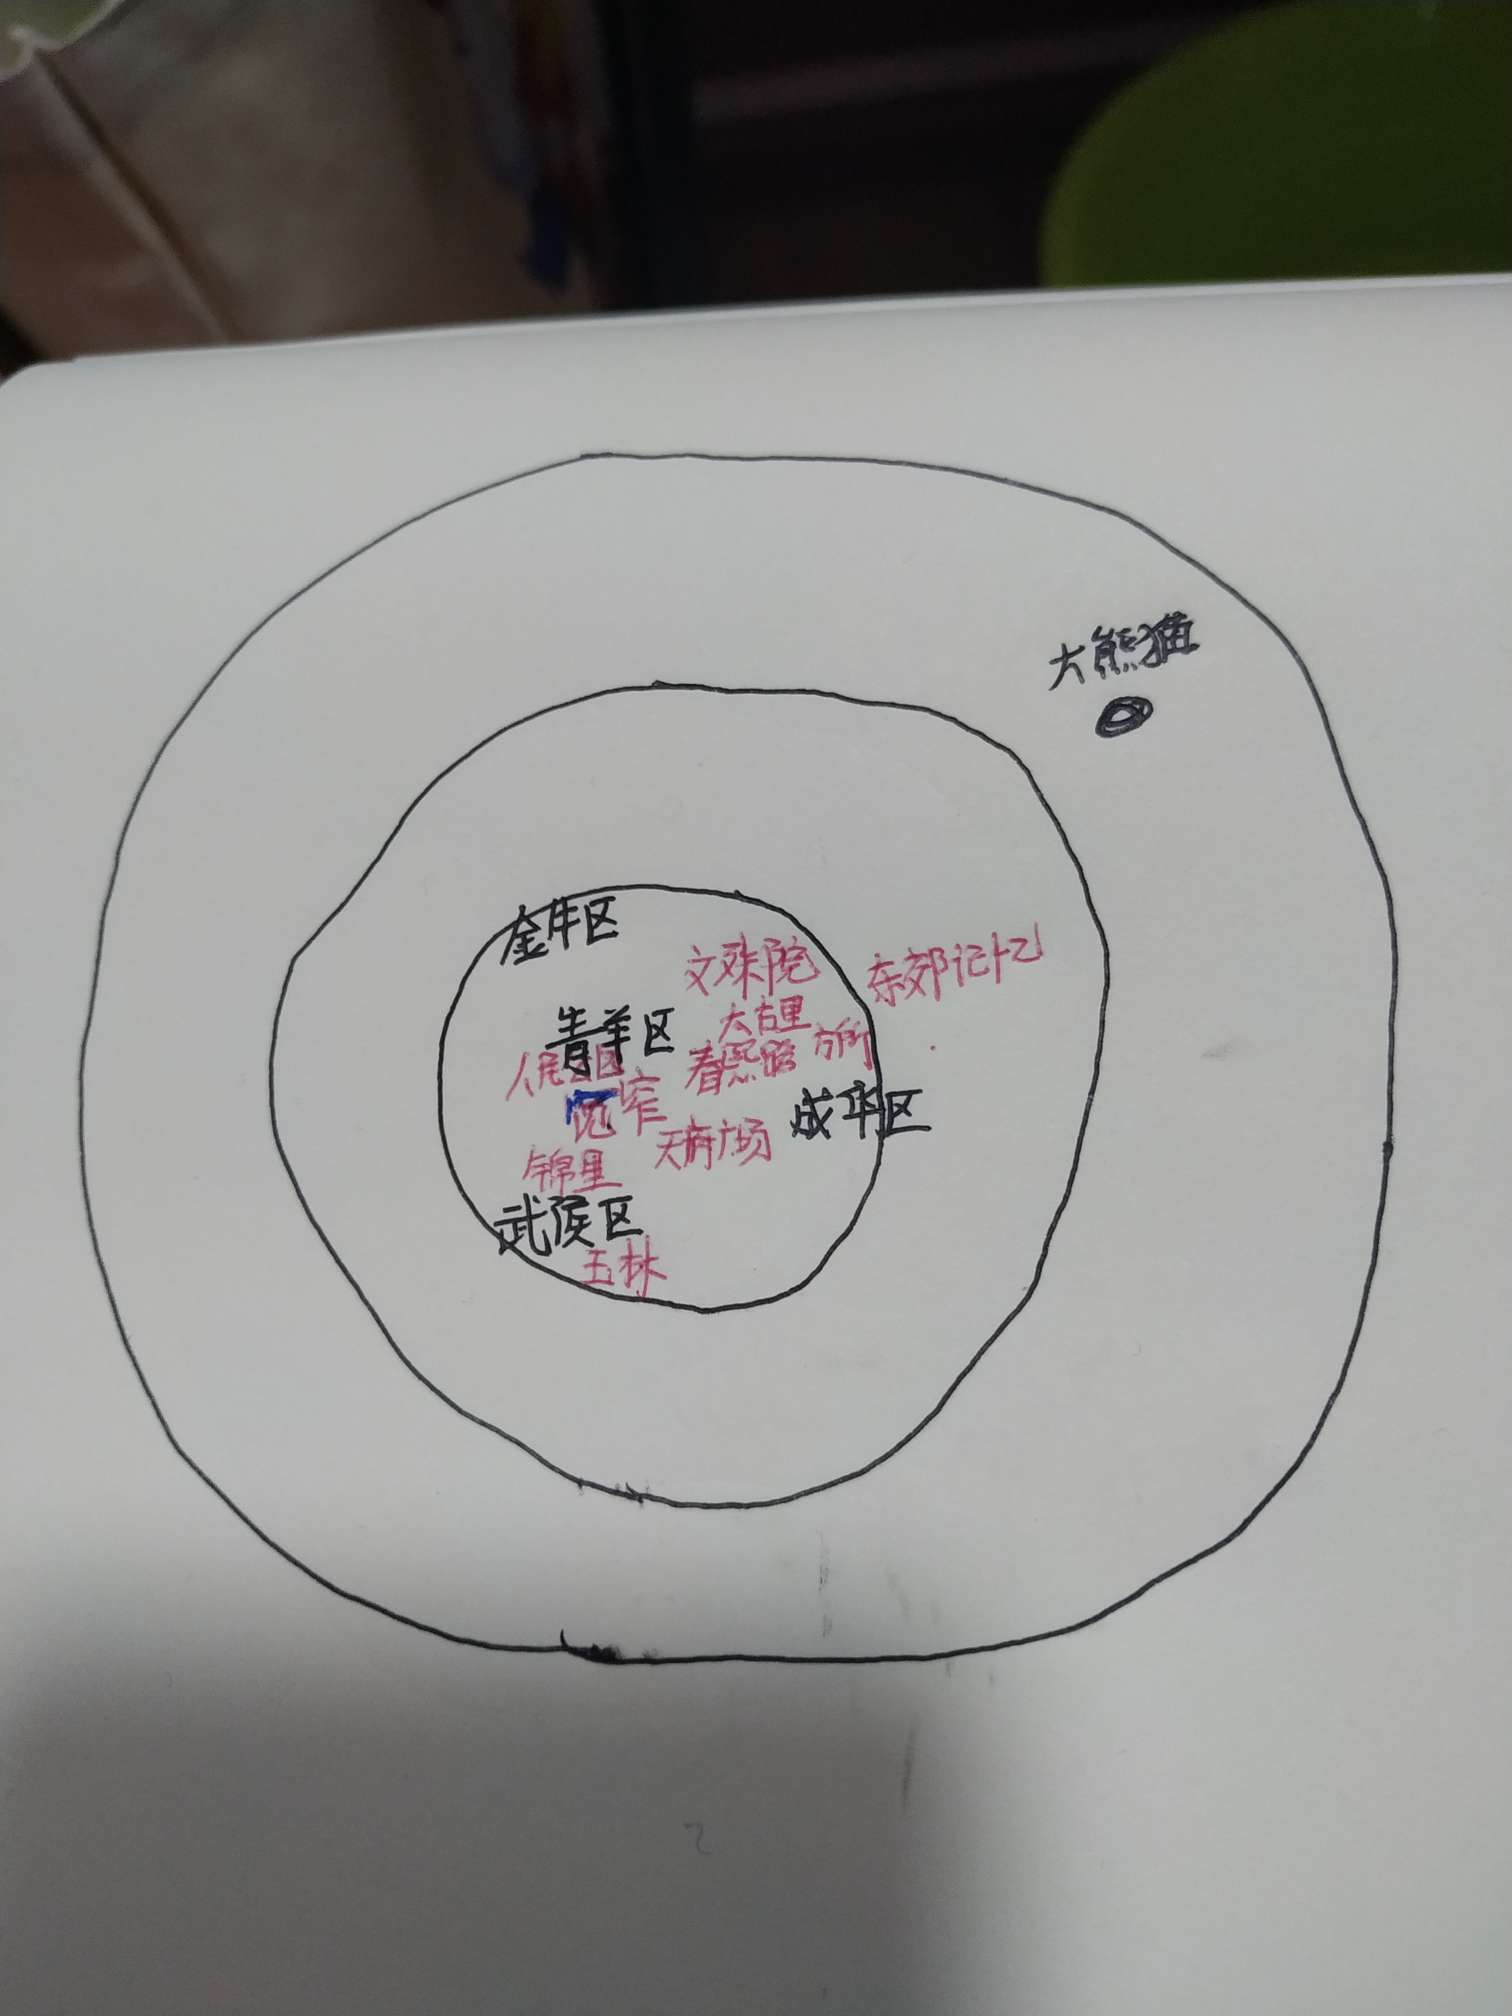 大熊猫
金牛区
文殊院
东郊记忆
大古里
青羊区
春熙路
方所
人民公园
宽窄
成华区
天府广场
锦里
武侯区
玉林